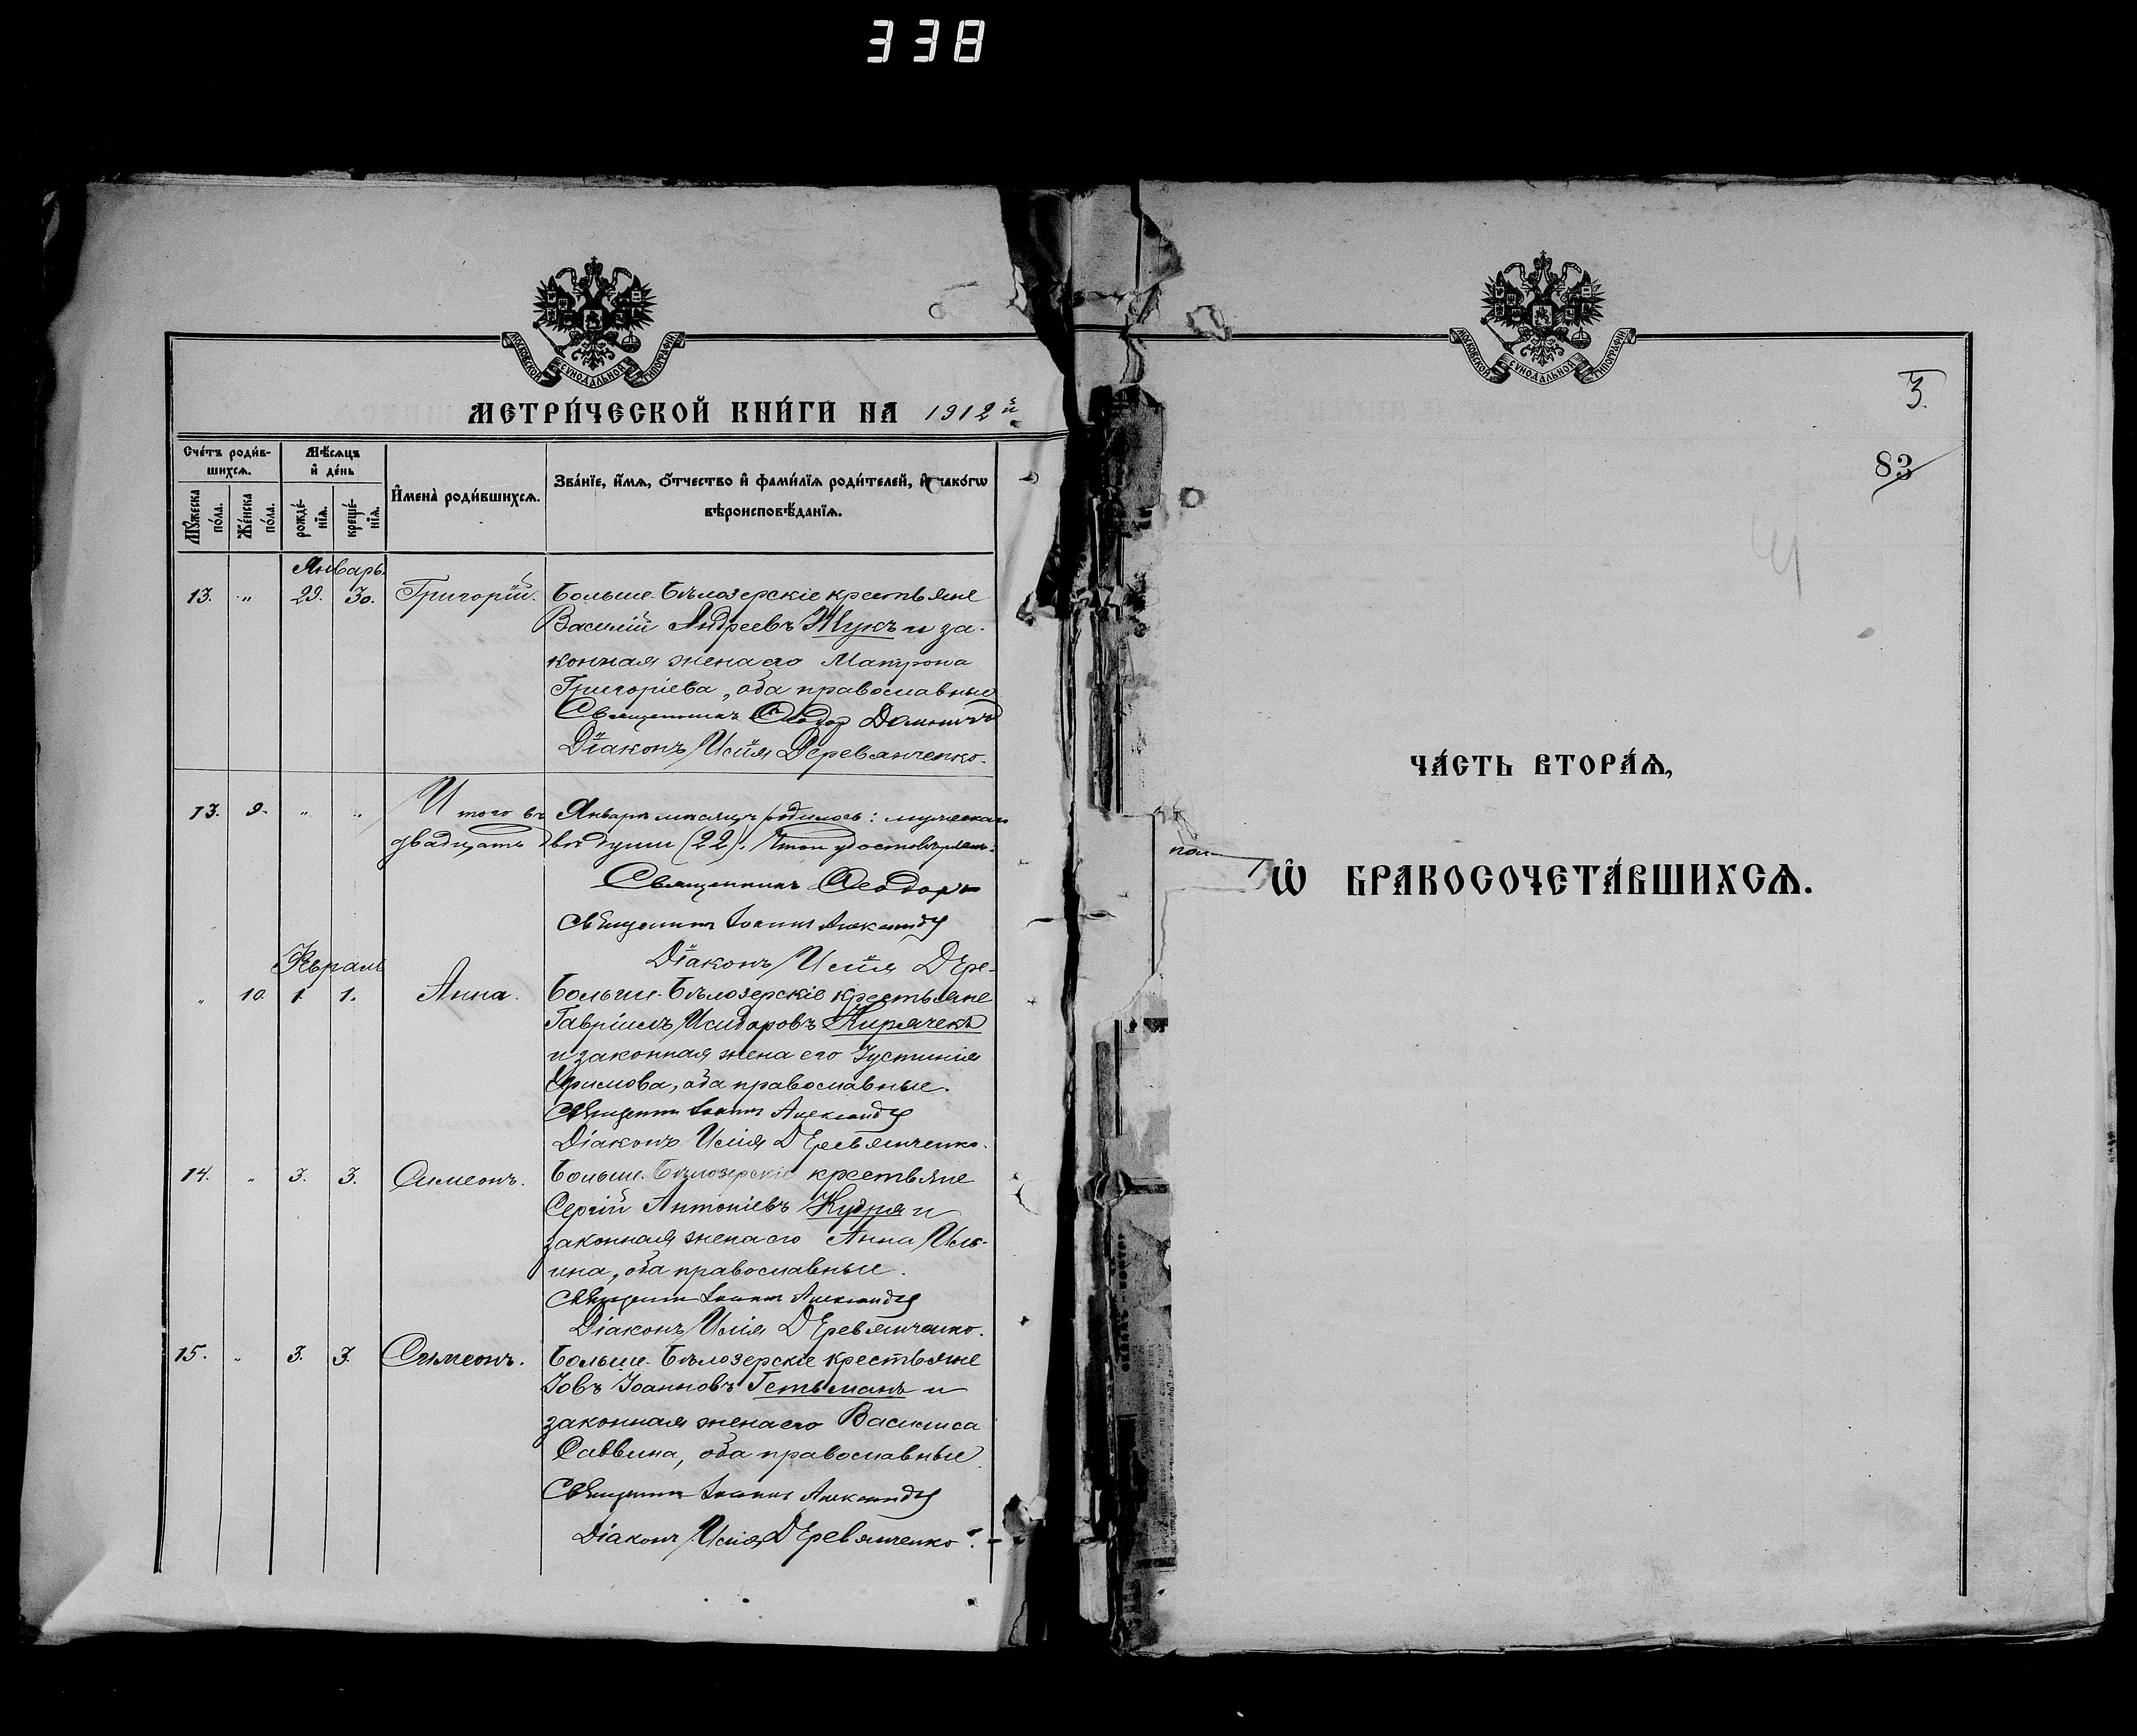 338
МОСКОВСКОЙ СѴНОДАЛЬНОЙ ТИПОГРАФІИ
МЕТРИ́ЧЕСКОЙ КНИ́ГИ НА 1912 й
Сче́тъ роди́в-
шихсѧ.
Мѣ́сѧцъ
и҆ де́нь
И҆мена̀ роди́вшихсѧ.
Зва́нїе, и҆́мѧ, ѻ҆́тчество и҆ фами́лїѧ роди́телей, и҆ како́гѡ
вѣроисповѣ́данїѧ.
Мꙋ́жеска по́ла.
Же́нска по́ла.
рожде́-нїѧ.
креще́-нїѧ.
Январь.
13. „ 29. 30. Григорій. Больше-Бѣлозерскіе крестьяне
Василій Андреевъ Жукъ и за-
конная жена его Матрона
Григоріева, оба православные
Священникъ Ѳеодор
Діаконъ Илія Деревянченко.
13. 9. „ „ Итого въ Январѣ мѣсяцѣ родилось: мужеска
двадцать двѣ души (22). Что и удостовѣряемъ:
Священникъ Ѳеодоръ
Священникъ Іоаннъ
Діаконъ Илія Дере-
Февраль
„ 10. 1. 1. Анна. Больше-Бѣлозерскіе крестьяне
Гавріилъ Исидоровъ Кирячекъ
и законная жена его Іустинія
Ефимова, оба православные.
Священникъ Іоаннъ
Діаконъ Илія Деревянченко.
14. „ 3. 3. Симеонъ. Больше-Бѣлозерскіе крестьяне
Сергій Антоніевъ Кудря и
законная жена его Анна Иль-
ина, оба православные.
Священникъ Іоаннъ
Діаконъ Илія Деревянченко.
15. „ 3. 3. Симеонъ. Больше-Бѣлозерскіе крестьяне
Іовъ Іоанновъ Гетьманъ и
законная жена его Василиса
Саввина, оба православные
Священникъ Іоаннъ
Діаконъ Илія Деревянченко.
МОСКОВСКОЙ СѴНОДАЛЬНОЙ ТИПОГРАФІИ
3.
83
ЧА́СТЬ ВТОРА́Ѧ,
Ѡ҆ БРАКОСОЧЕТА́ВШИХСѦ.